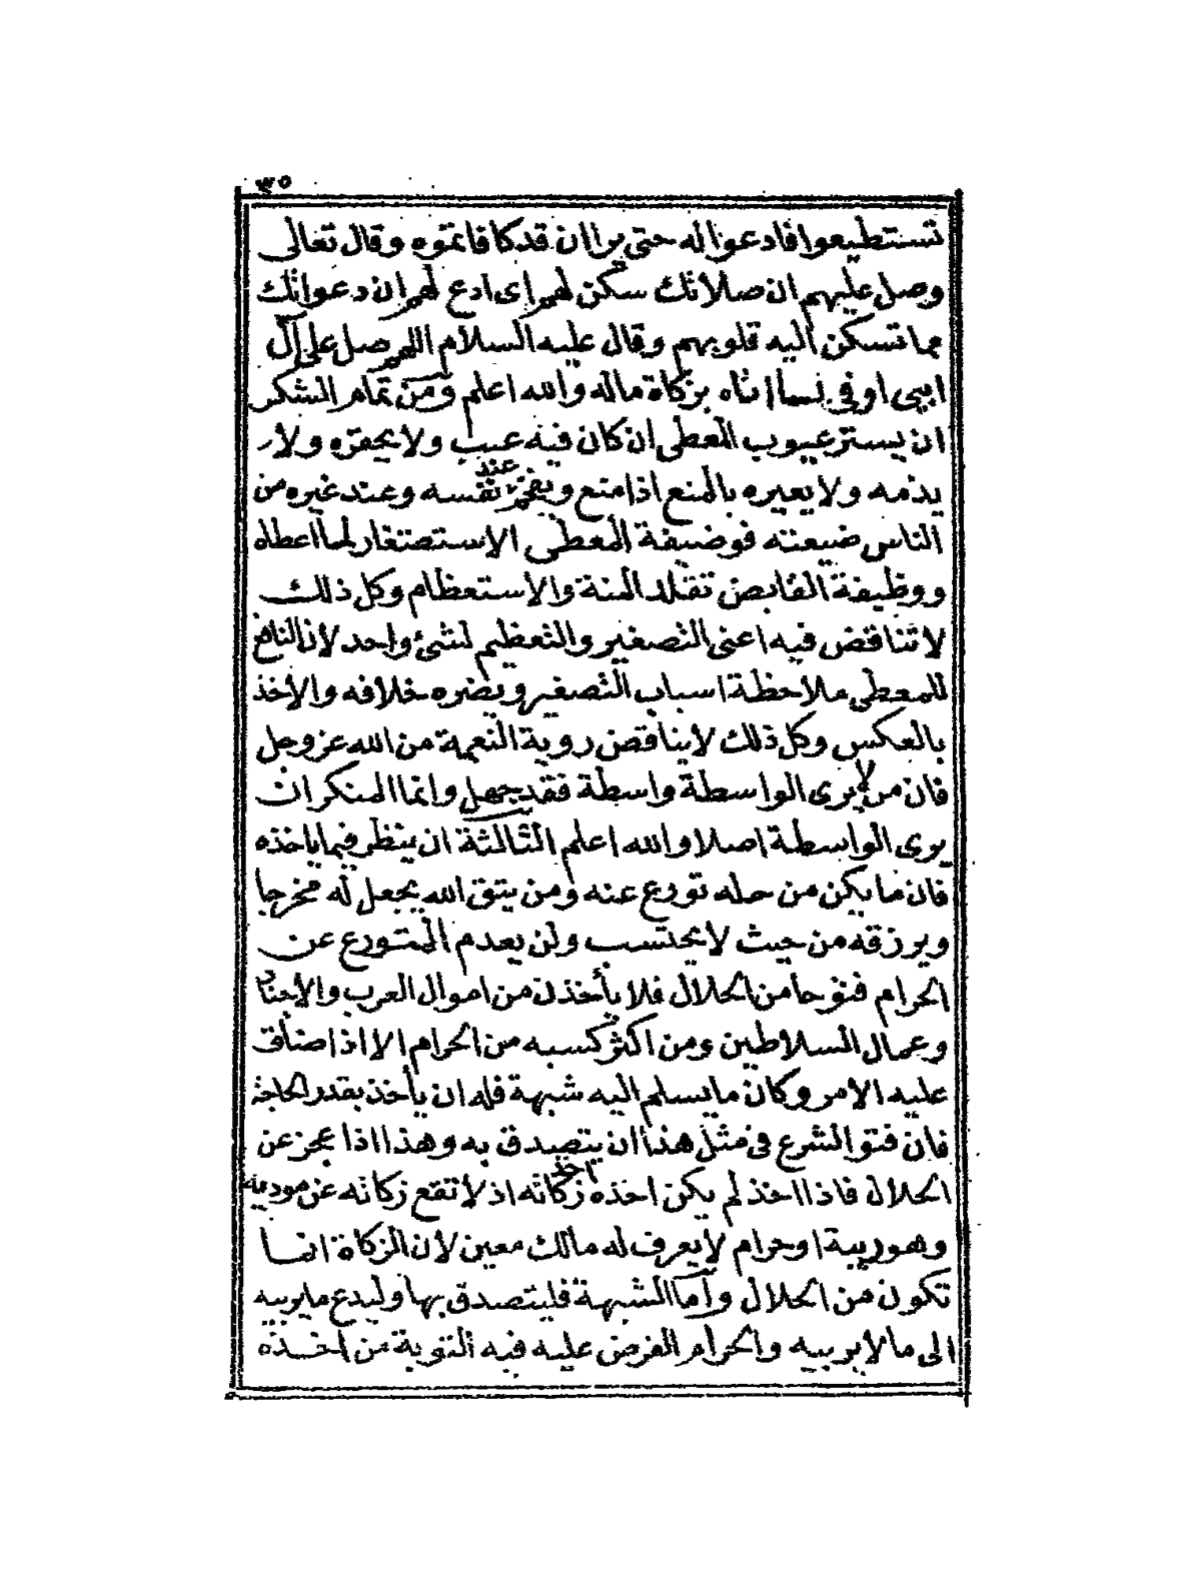 ٣٥
تستطيعوا فادعوا له حتى يرا ان قد كافاتموه وقال تعالى
وصل عليهم ان صلاتك سكن لهم اى ادع لهم ان دعواتك
مما تسكن اليه قلوبهم وقال عليه السلام اللهم صل على آل
ابى اوفى لما اتاه بزكاة ماله والله اعلم ومن تمام الشكر
ان يستر عيوب المعطى ان كان فيه عيب ولا يحقره ولا
يذمه ولا يعيره بالمنع اذا منع ويفخم عند نفسه وعند غيره من
الناس ضيعته فوضيفة المعطى الاستصتغار لما اعطاه
ووظيفة القابض تقلد المنة والاستعظام وكل ذلك
لا تناقض فيه اعنى التصغير والتعظيم لشئ واحد لان النافع
للمعطى ملاحظة اسباب التصغير ويضره خلافه والاخذ
بالعكس وكل ذلك لا يناقض روية النعمة من الله عز وجل
فان من لا يرى الواسطة واسطة فقد جهل وانما المنكر ان
يرى الواسطة اصلا والله اعلم الثالثة ان ينظر فيما ياخذه
فان ما يكن من حله تورع عنه ومن يتق الله يجعل له مخرجا
ويرزقه من حيث لا يحتسب ولن يعدم المتورع عن
الحرام فتوحا من الحلال فلا يأخذن من اموال العرب والاجناد
وعمال السلاطين ومن اكثر كسبه من الحرام الا اذا ضاق
عليه الامر وكان ما يسلم اليه شبهة فله ان يأخذ بقدر الحاجة
فان فتو الشرع فى مثل هذا ان يتصدق به وهذا اذا عجز عن
الحلال فاذا اخذ لم يكن اخذه اخذ زكاته اذ لا تقع زكاته عن موديه
وهو ريبة او حرام لا يعرف له مالك معين لان الزكاة انما
تكون من الحلال وأما الشبهة فليتصدق بها وليدع ما يريبه
الى ما لا يريبيه والحرام الفرض عليه فيه التوبة من اخذه